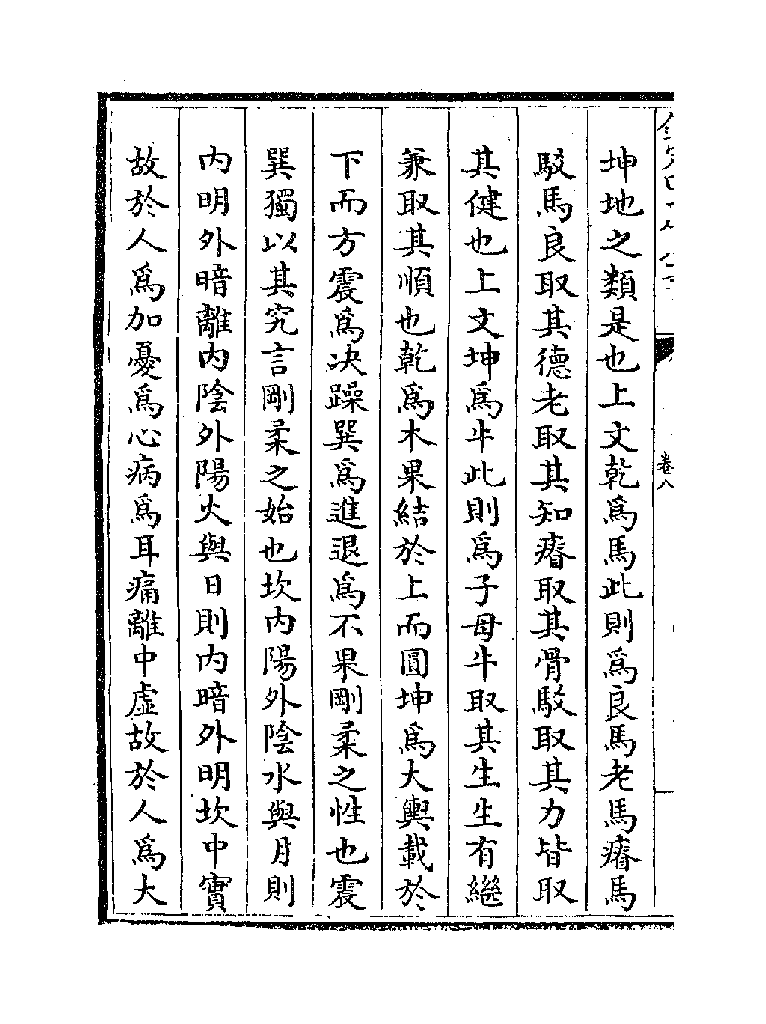 坤地之類是也上文乾爲馬此則爲良馬老馬瘠馬
駁馬良取其德老取其知瘠取其骨駁取其力皆取
其健也上文坤爲牛此則爲子母牛取其生生有繼
兼取其順也乾爲木果結於上而圓坤爲大輿載於
下而方震爲决躁巽爲進退爲不果剛柔之性也震
巽獨以其究言剛柔之始也坎内陽外陰水與月則
内明外暗離内陰外陽火與日則内暗外明坎中實
故於人爲加憂爲心病爲耳痛離中虛故於人爲大
卷八